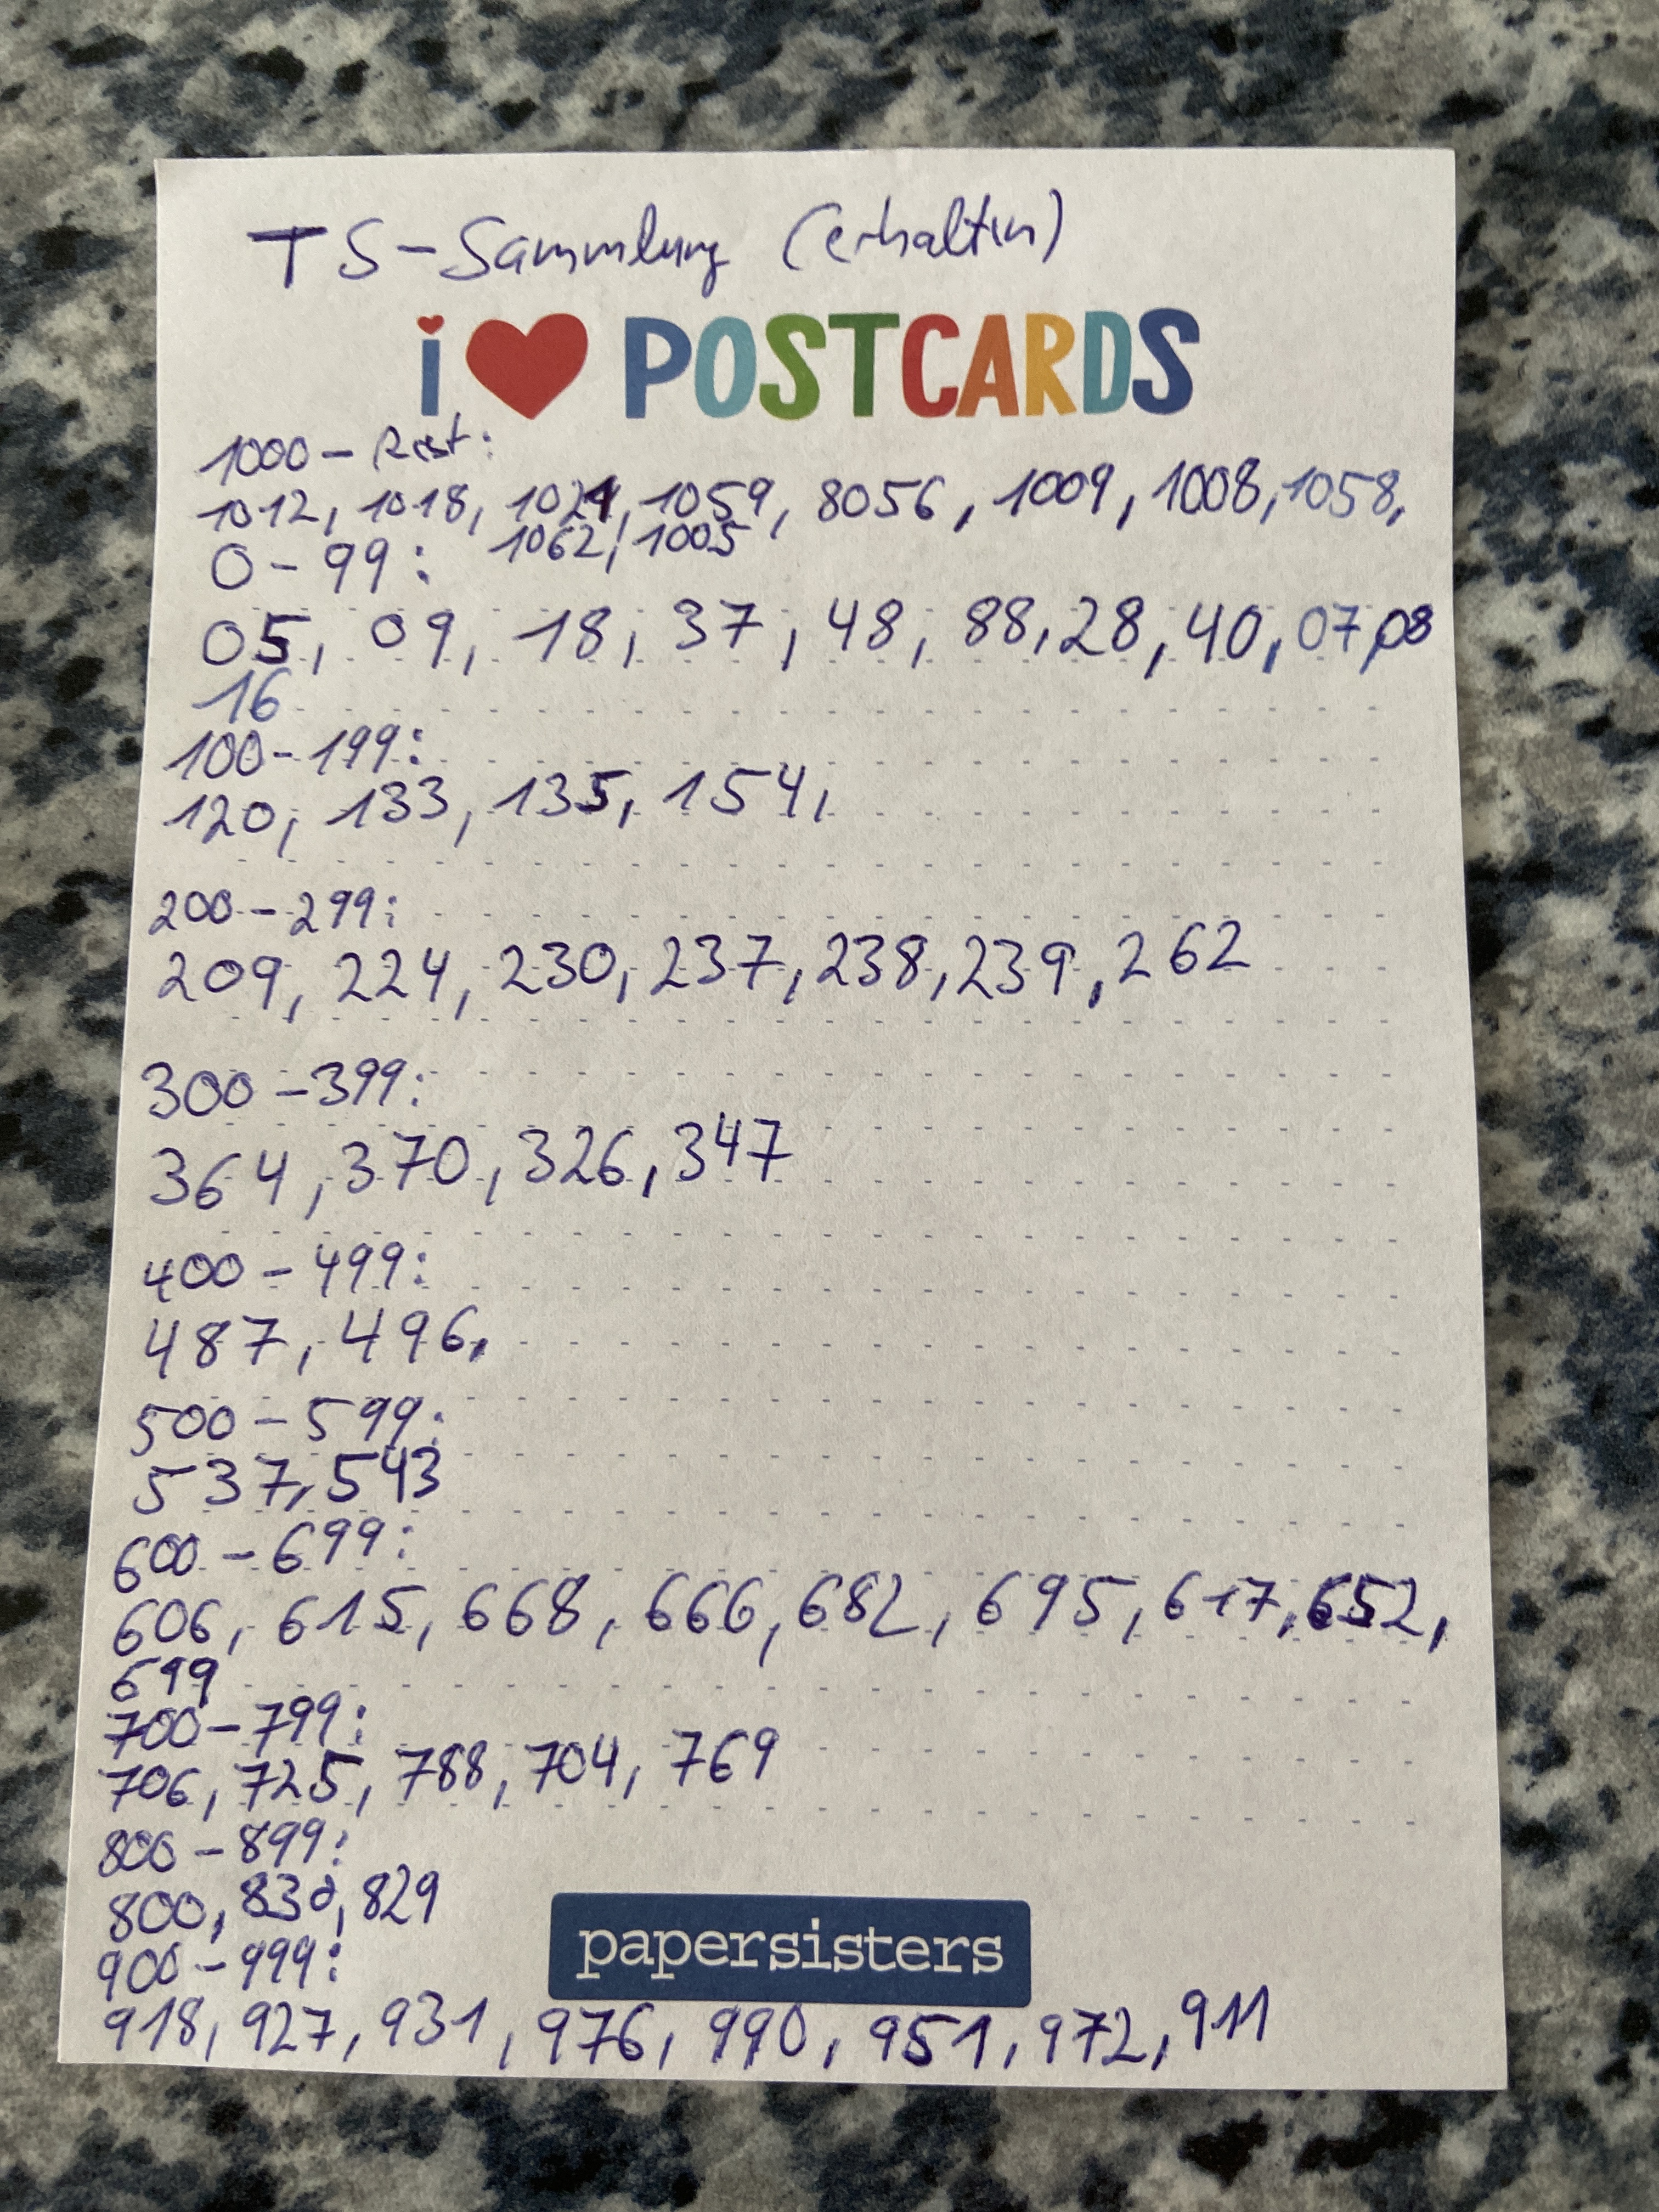 TS-Sammlung (erhalten)
i ♥ POSTCARDS
1000 – Rest:
1012, 1018, 1024, 1059, 8056, 1009, 1008, 1058,
1062, 1005
0 – 99:
05, 09, 18, 37, 48, 88, 28, 40, 07, 08
16
100 – 199:
120, 133, 135, 154,
200 – 299:
209, 224, 230, 237, 238, 239, 262
300 – 399:
364, 370, 326, 347
400 – 499:
487, 496,
500 – 599:
537, 543
600 – 699:
606, 615, 668, 666, 682, 695, 617, 652,
699
700 – 799:
706, 725, 788, 704, 769
800 – 899:
800, 830, 829
900 – 999:
papersisters
918, 927, 931, 976, 990, 951, 972, 911